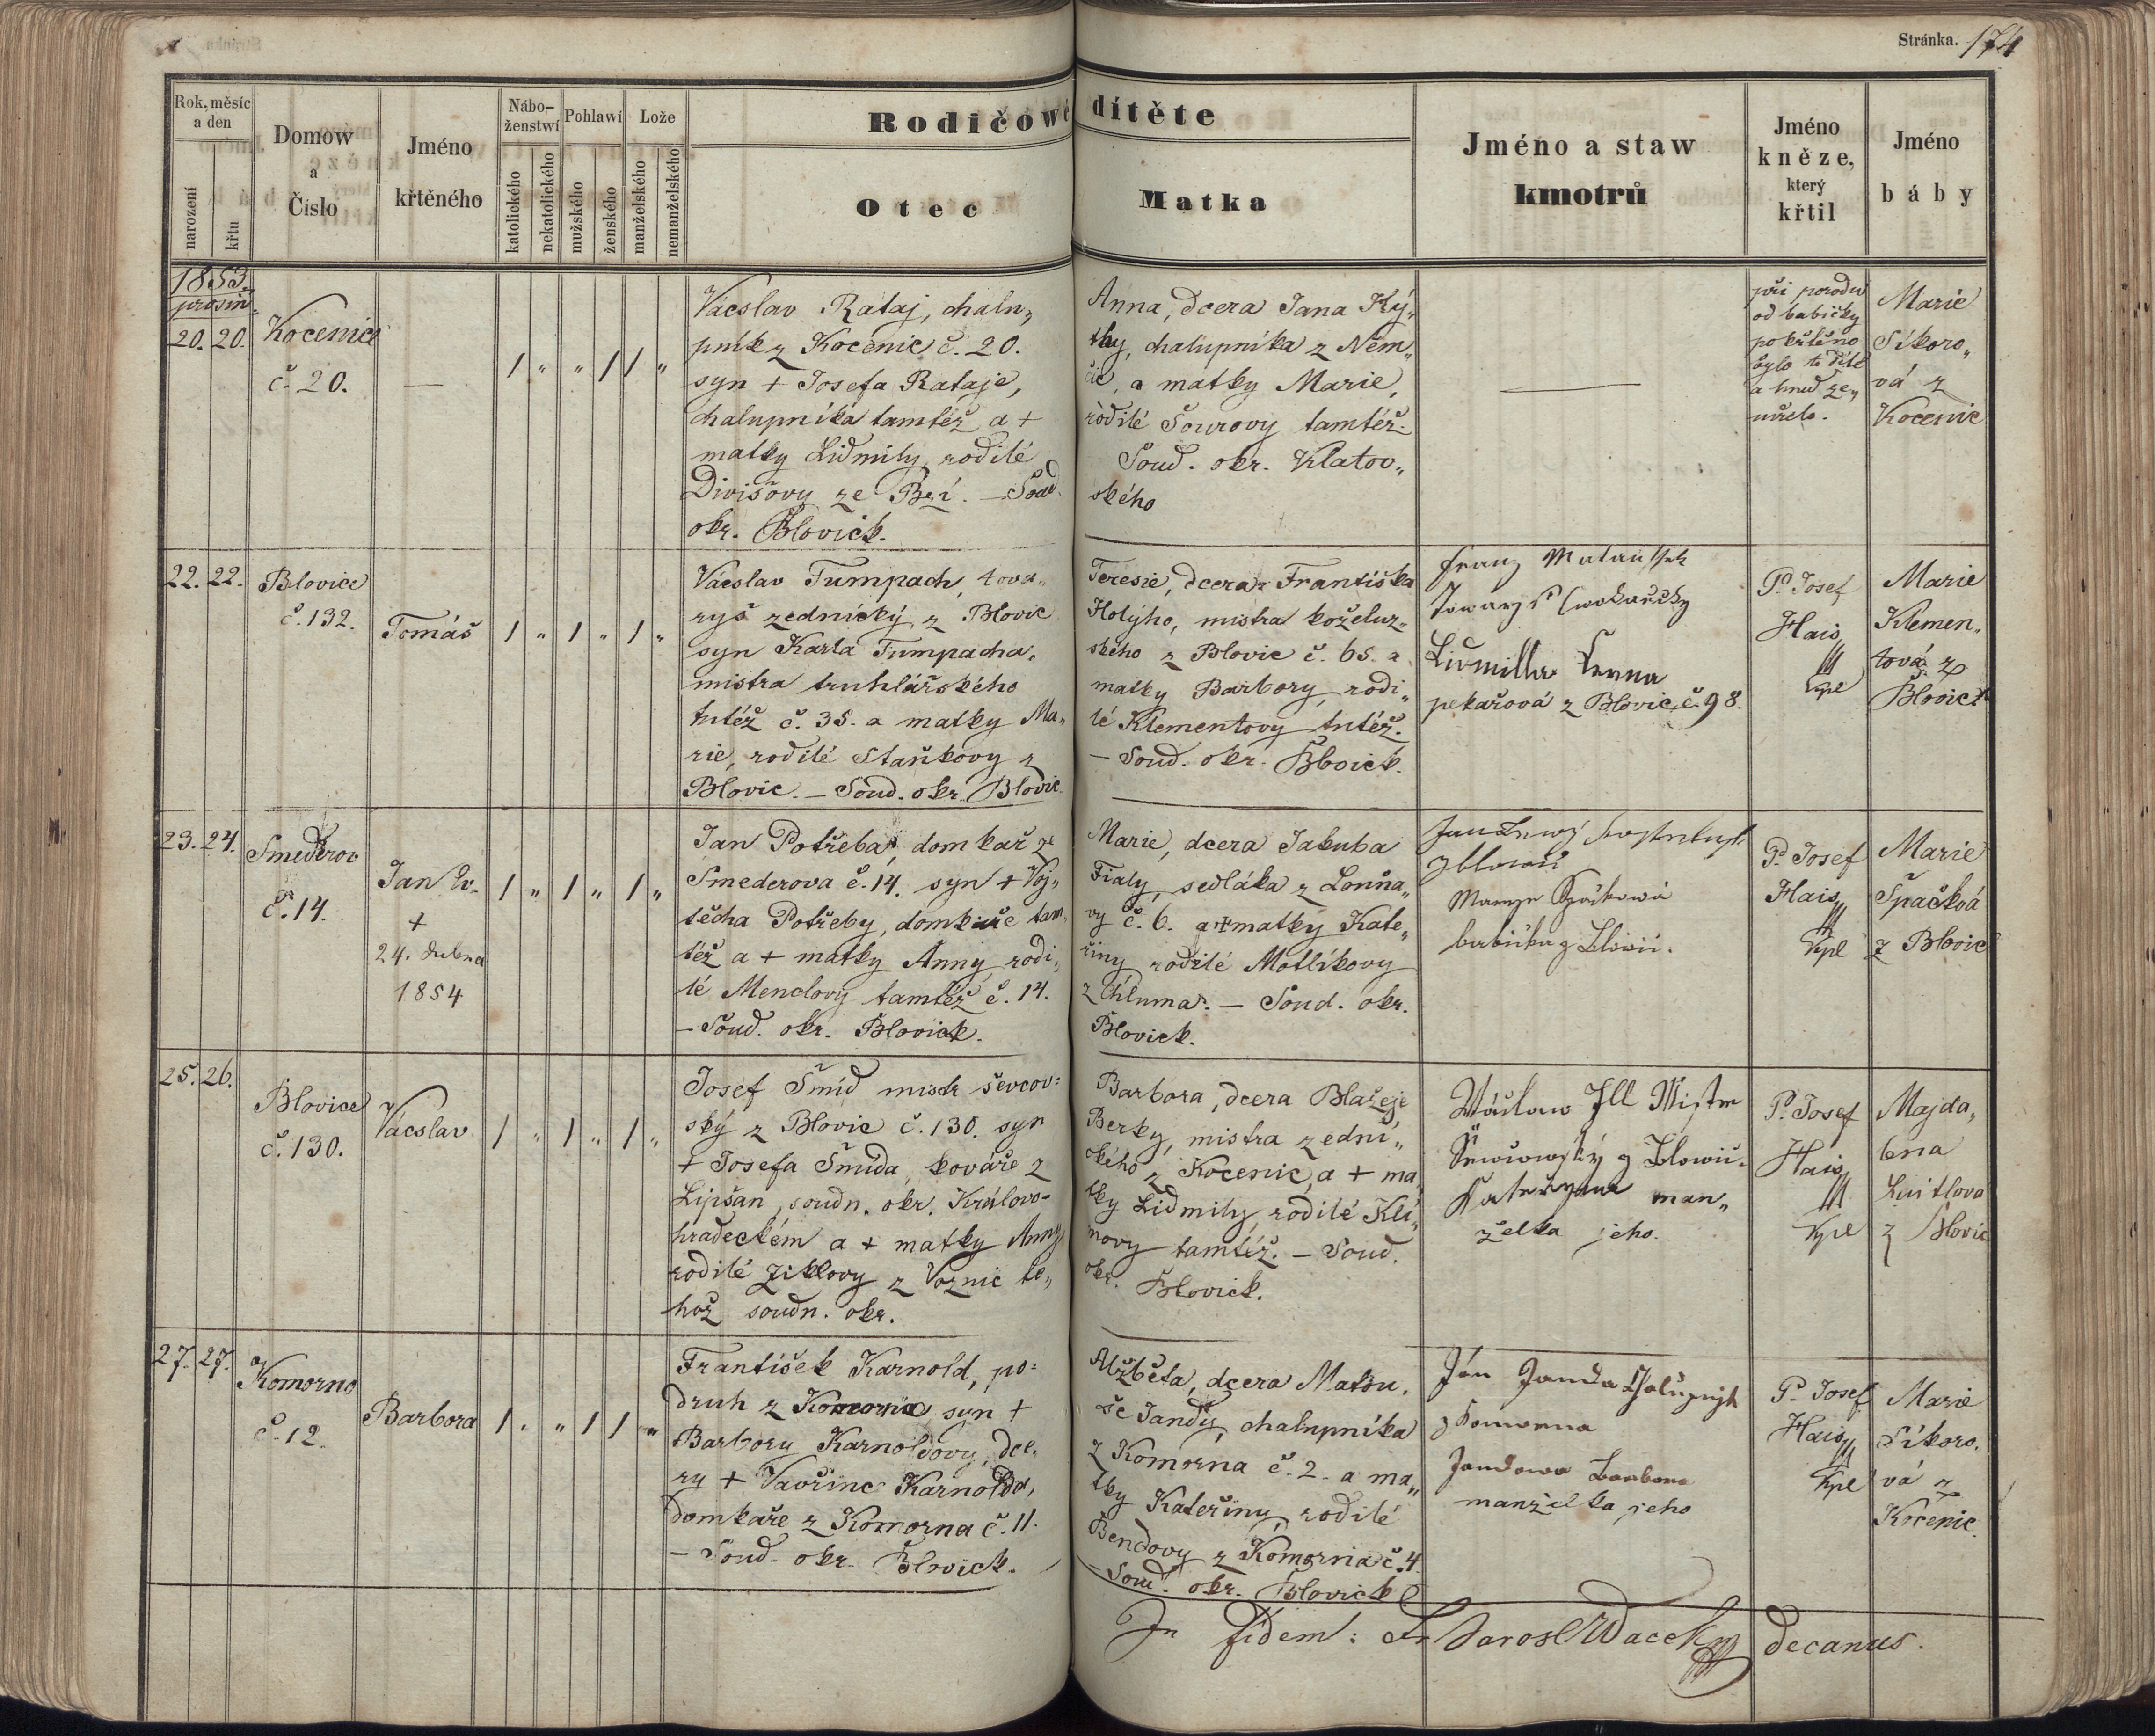 Stránka. 174
Rok, měsíc
a den
narození
křtu
Domow
a
Číslo
Jméno
křtěného
Nábo-
ženstwí
katolického
nekatolického
Pohlawí
mužského
ženského
Lože
manželského
nemanželského
Rodičowé dítěte
Otec
Matka
Jméno a staw
kmotrů
Jméno
kněze,
který
křtil
Jméno
báby
1853.
prosin.
20. 20.
Kocenice
č. 20.
—
/ " " / / "
Vácslav Rataj, chalu„
pník z Kocenic č. 20.
syn + Josefa Rataje,
chalupníka tamtéž a +
matky Lidmily, rodilé
Divišovy ze Bzí. — Soud.
okr. Blovick.
Anna, dcera Jana Ký„
thy, chalupníka z Něm„
čic, a matky Marie,
rodilé Sourovy tamtéž.
Soud. okr. Klatov„
ského
—
při porodu
od babičky
pokřtěno
bylo to dítě
a hned ze„
mřelo.
Marie
Síkoro„
vá z
Kocenic
22. 22.
Blovice
č. 132.
Tomáš
/ " / " / "
Vácslav Tumpach, tova„
ryš zednický z Blovic
syn Karla Tumpacha,
mistra truhlářského
tutéž č. 35. a matky Ma„
rie, rodilé Staňkovy z
Blovic. — Soud. okr. Blovic.
Teresie, dcera Františka
Holýho, mistra koželuž„
ského z Blovic č. 65. a
matky Barbory, rodi„
lé Klementovy tutéž.
— Soud. okr. Blovick.
Franz
Lidmilla
pekařová z Blovic č. 98.
P. Josef
Hais
Kpl
Marie
Klemen„
tová z
Blovic
23. 24.
Smederov
č. 14.
Jan Ev.
+
24. dubna
1854
/ " / " / "
Jan Potřeba, domkař ze
Smederova č. 14. syn + Voj„
těcha Potřeby, domkáře tam„
též a + matky Anny, rodi„
lé Menclovy tamtéž č. 14.
— Soud. okr. Blovick.
Marie, dcera Jakuba
Fialy, sedláka z Louňa„
vy č. 6. a + matky Kate„
řiny rodilé Motlíkovy
z Chluma. — Soud. okr.
Blovick.
Jan
z Blowic
babička z Blowic.
P. Josef
Hais
Kpl
Marie
Špačková
z Blovic
25. 26.
Blovice
č. 130.
Vácslav
/ " / " / "
Josef Šmíd mistr ševcov=
ský z Blovic č. 130. syn
+ Josefa Šmída, kováře z
Lipšan, soudn. okr. Královo-
hradeckém a + matky Anny,
rodilé Ziklovy z Voznic to„
hož soudn. okr.
Barbora, dcera Blažeje
Berky, mistra zedni„
ckého z Kocenic, a + ma„
tky Lidmily, rodilé Klí„
movy tamtéž. — Soud.
okr. Blovick.
Wáclaw Jll Mistr
z Blowic.
Kateřyna man„
želka jeho.
P. Josef
Hais
Kpl
Majda„
lena
z Blovic
27. 27.
Komorno
č. 12.
Barbora
/ " " / / "
František Karnold, po=
druh z Komorna, syn +
Barbory Karnoldovy, dce„
ry + Vavřince Karnolda,
domkaře z Komorna č. 11.
— Soud. okr. Blovick.
Alžběta, dcera Matou„
še Jandy, chalupníka
z Komorna č. 2. a ma„
tky Kateřiny, rodilé
Bendovy z Komorna č. 4.
— Soud. okr. Blovick
Ján Janda
z Komorna
Jandowa Barbora
manželka jeho
P. Josef
Hais
Kpl
Marie
Síkoro„
vá z
Kocenic.
In fidem: decanus.